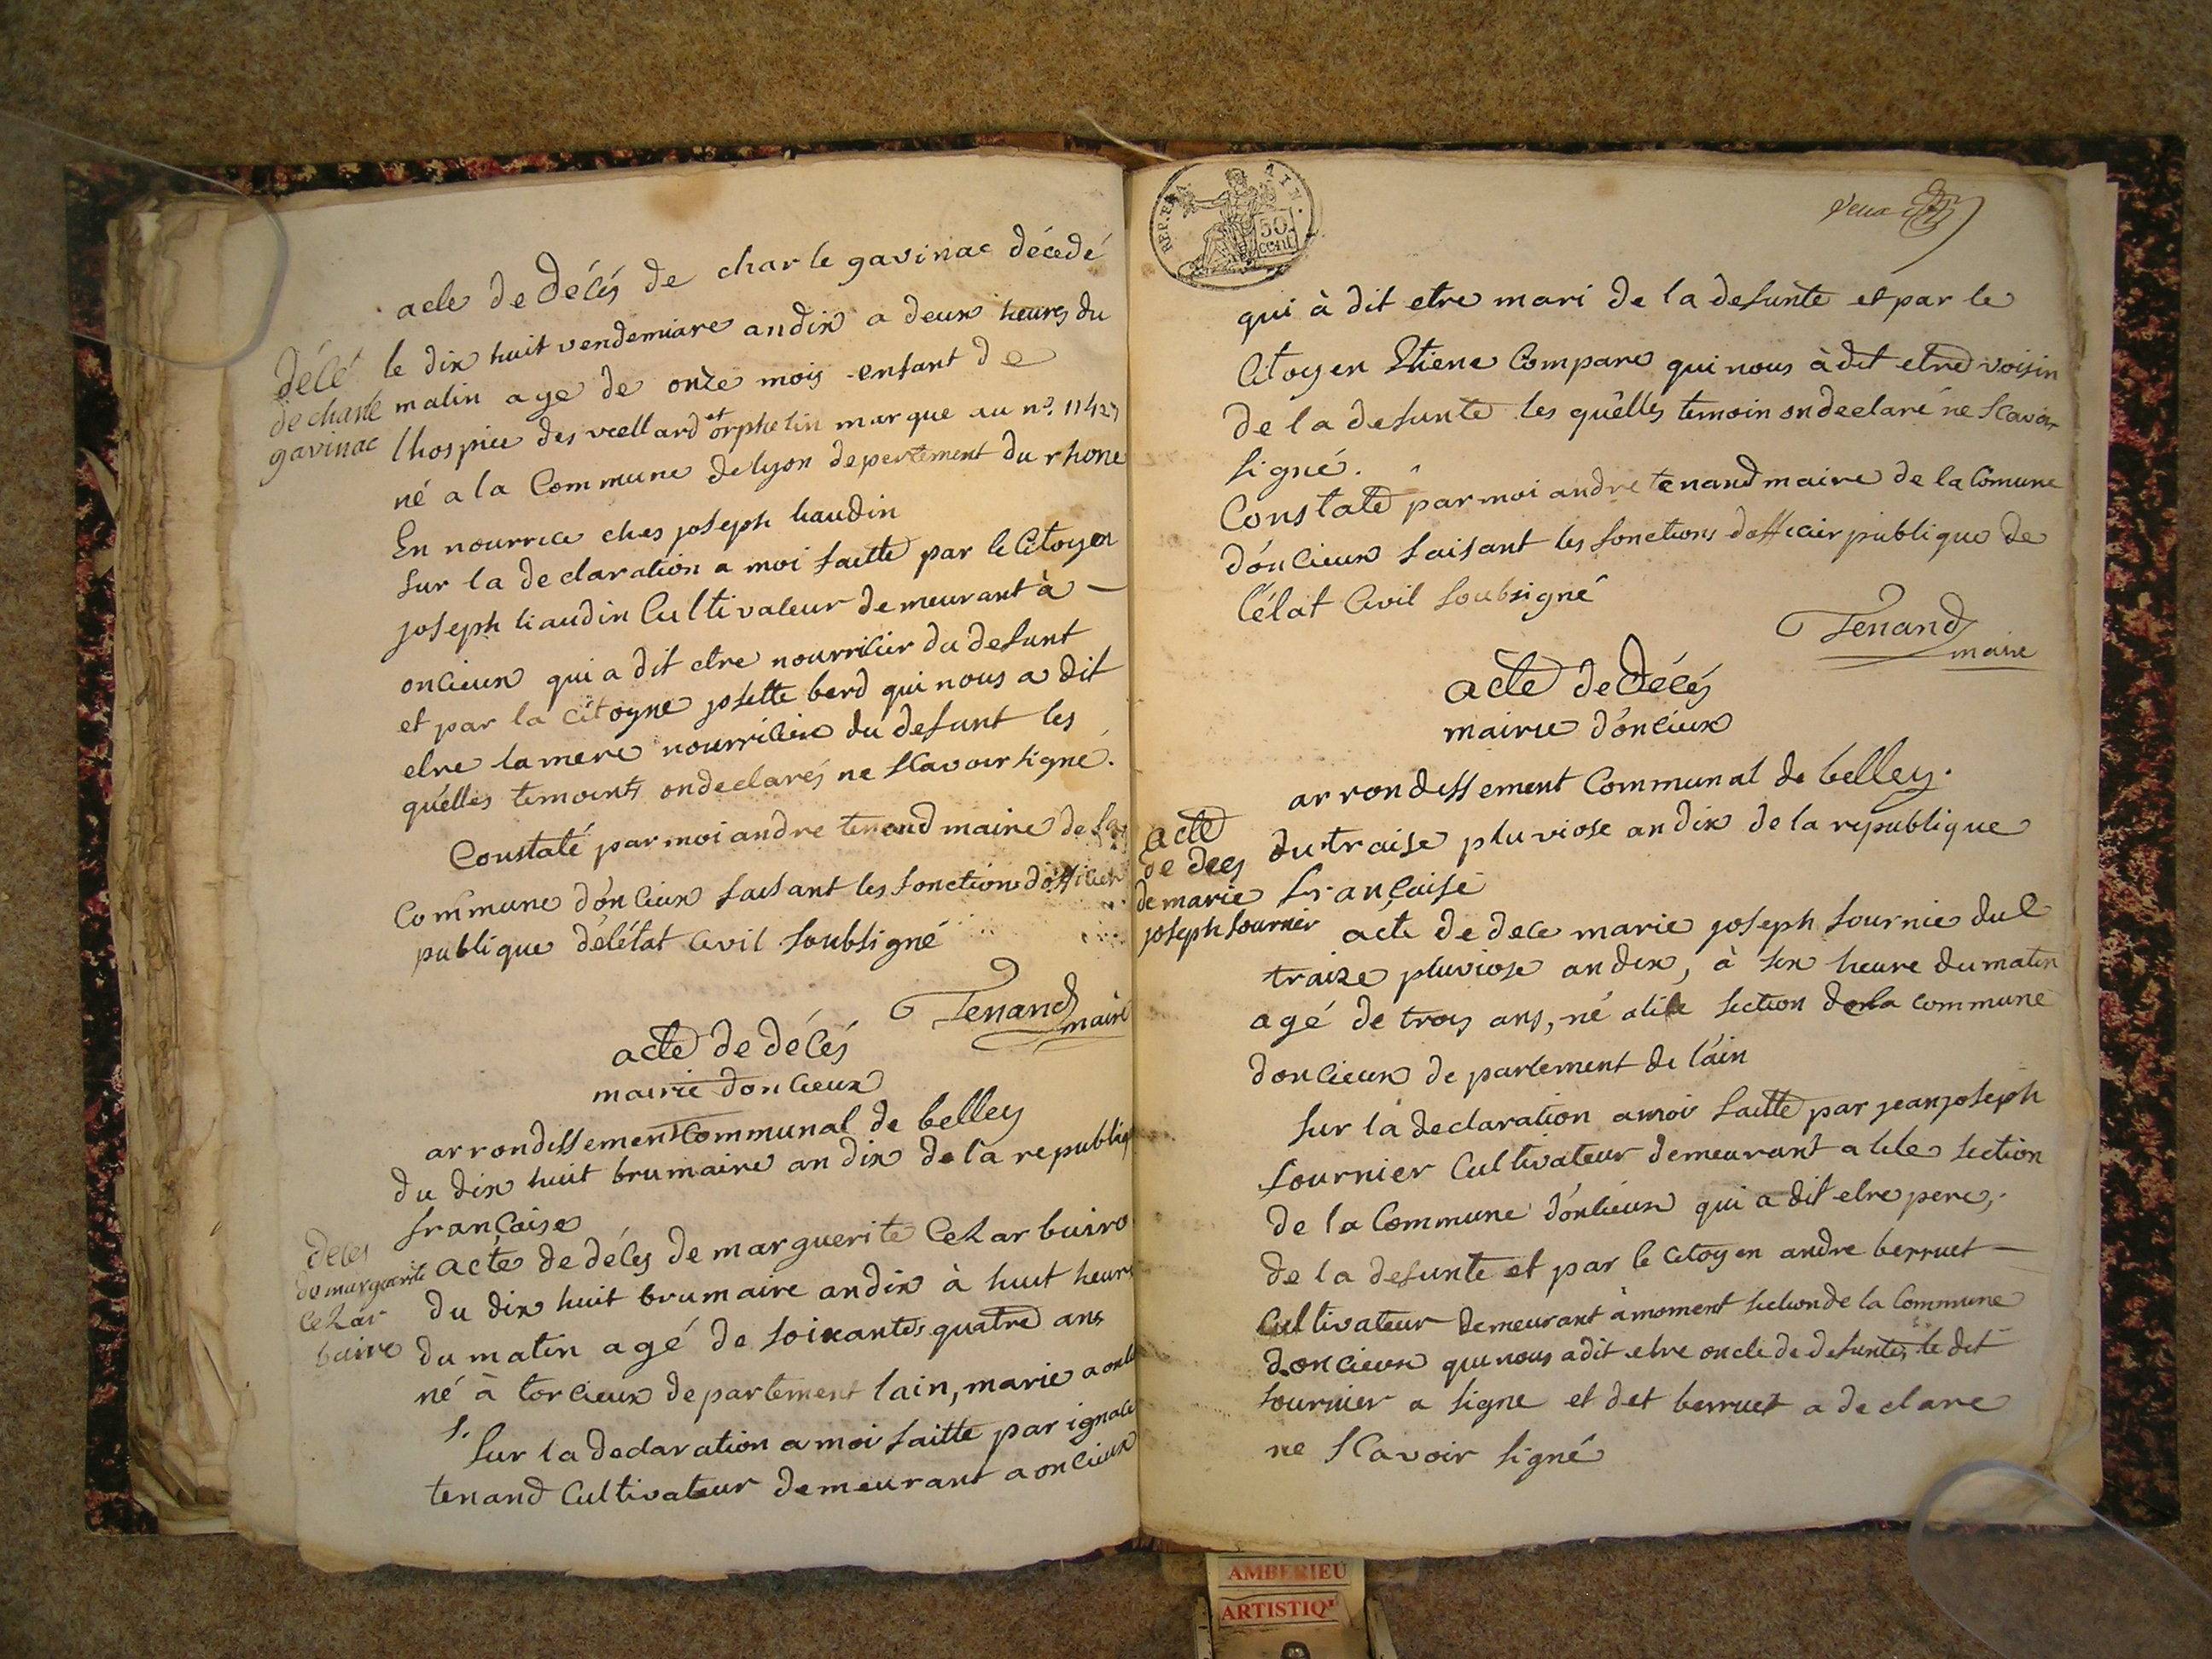 acte de décés de charle gavinac décedé
le dix huit vendemiare an dix a deux heures du
matin age de onze mois enfant de
lhospice des vieellard et orphelin marque au n°. 11427
né a la Commune de lyon depertement du rhone
En nourrice ches joseph liaudin
sur la declaration a moi faitte par le Citoyen
joseph liaudin Cultivateur demeurant à –
oncieux qui a dit etre nourricier du defunt
et par la citoyne josette berd qui nous a dit
etre la mere nourriciere du defunt les
quélles temoints on declarés ne scavoir signé.
Constaté par moi andre tenand maire de la
Commune dóncieux faisant les fonctions dofficier
publique de létat Civil soubsigné
Tenand
maire
décé
de charle
gavinac
acte de décés
mairie doncieux
arrondissement Communal de belley
du dix huit brumaire an dix de la republiq
française
acte de décés de marguerite Cezar buire
du dix huit brumaire an dix à huit heure
du matin agé de soixantes quatre ans
né à torcieux departement lain, marie a
s.
sur la declaration a moi faitte par ignace
tenand Cultivateur demeurant a oncieux
deces
de marguerite
Cezar
buire
REP. FRA
50
cent
AIN.
deux
qui à dit etre mari de la defunte et par le
Citoyen Etiene Compare qui nous à dit etre voisin
de la defunte les quélles temoin on declaré ne scavoir
signé.
Constate par moi andre tenand maire de la Comune
dóncieux faisant les fonctions dofficier publique de
létat Civil soubsigné
Tenand
maire
acte de décés
mairie dóncieux
arrondissement Communal de belley.
du traise pluviose an dix de la republique
française
acte
de dees
de marie
joseph fournier
acte de dece marie joseph fournie dul
traize pluviose an dix, à six heure du matin
agé de trois ans, né a lile section de la commune
doncieux de partement de láin
sur la declaration a moi faitte par jean joseph
fournier Cultivateur demeurant a lile section
de la Commune dóncieux qui a dit etre pere,
de la defunte et par le Citoyen andre berruet –
Cultivateur demeurant à moment section de la Commune
doncieux qui nous a dit etre oncle de defunte, le dit
fournier a signe et det berruet a declare
ne scavoir signé
AMBERIEU
ARTISTIQ